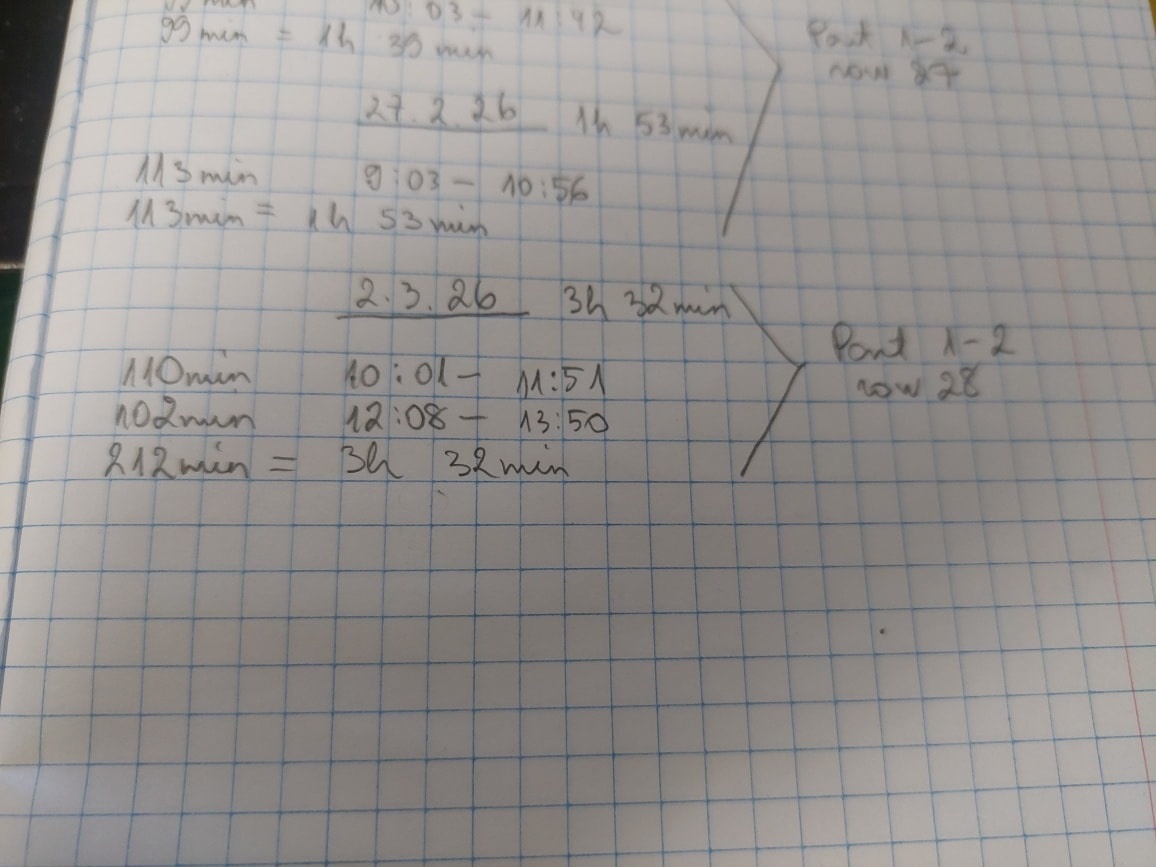 99min 10:03 - 11:42
99min = 1h 39min
Part 1-2
row 27
27.2.26 1h 53min
113min 9:03 - 10:56
113min = 1h 53min
2.3.26 3h 32min
110min 10:01 - 11:51
102min 12:08 - 13:50
212min = 3h 32min
Part 1-2
row 28